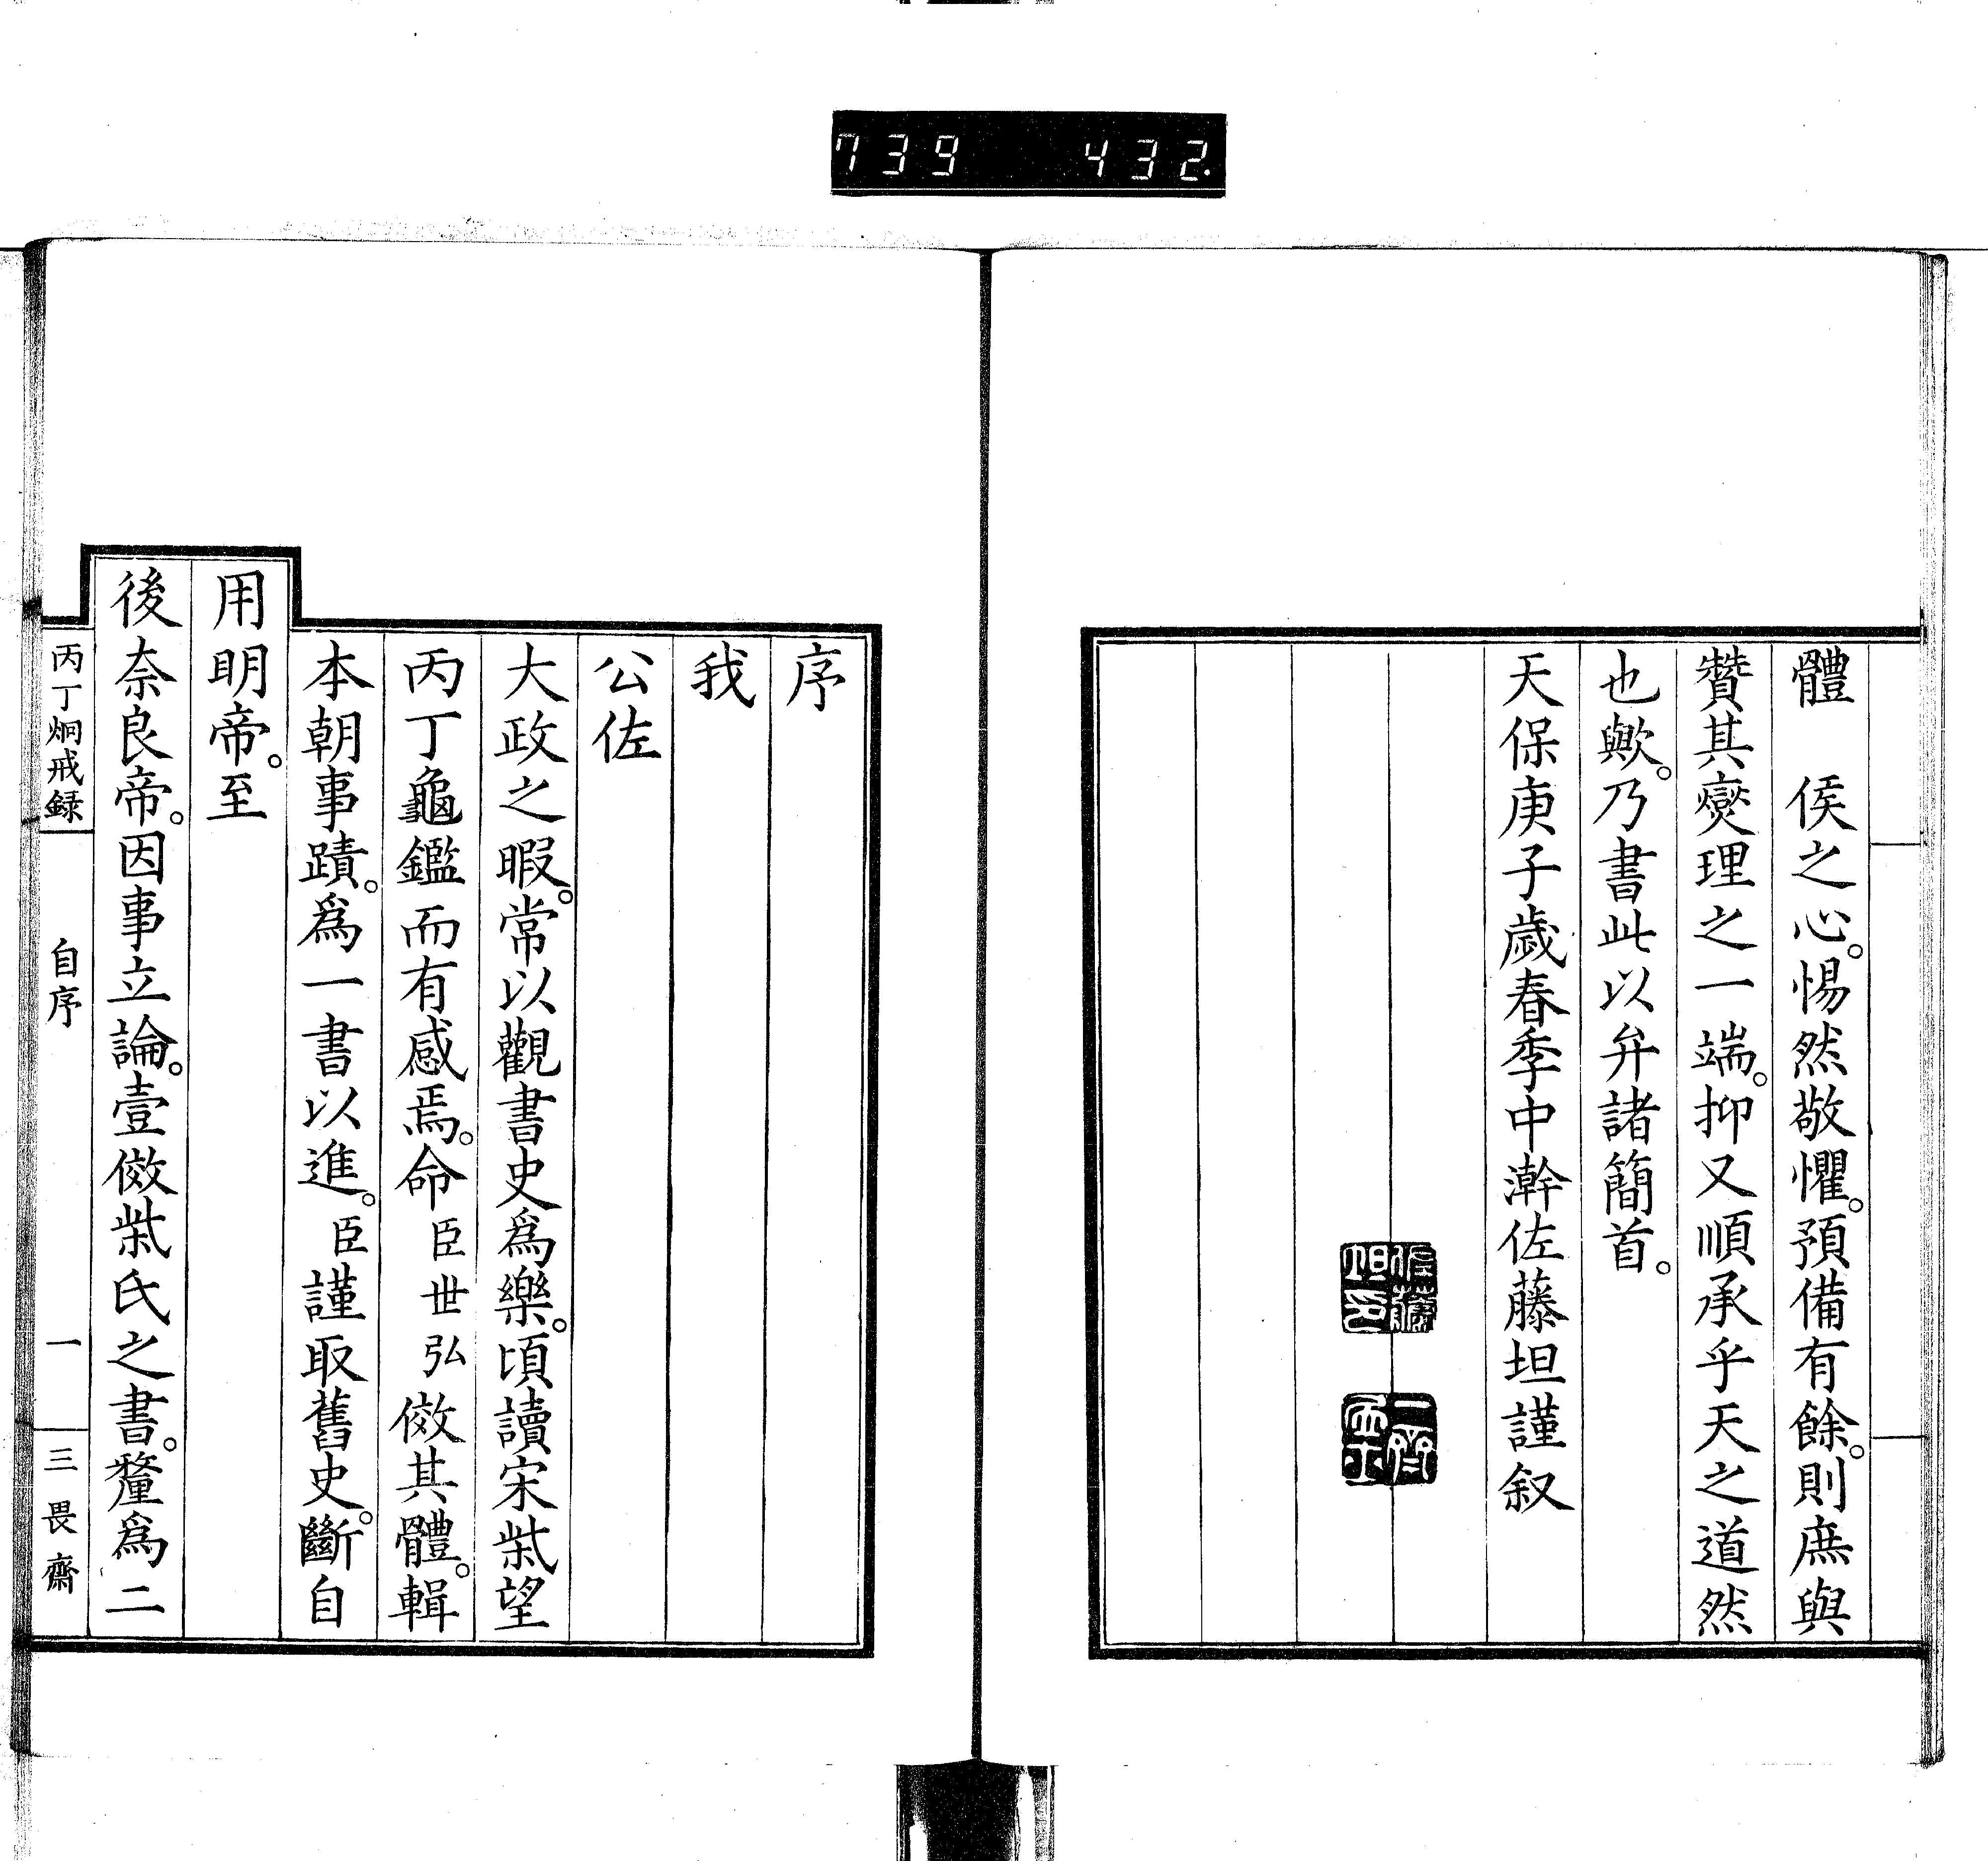 739 432.
體 侯之心。惕然敬懼。預備有餘。則庶與
贊其燮理之一端。抑又順承乎天之道然
也歟。乃書此以弁諸簡首。
天保庚子歲春季中澣佐藤坦謹叙
佐藤
坦印
一齋
序
我
公佐
大政之暇。常以觀書史爲樂。頃讀宋柴望
丙丁龜鑑而有感焉。命臣世弘倣其體。輯
本朝事蹟。爲一書以進。臣謹取舊史。斷自
用明帝。至
後奈良帝。因事立論。壹倣柴氏之書。釐爲二
丙丁炯戒録 自序 一 三畏齋